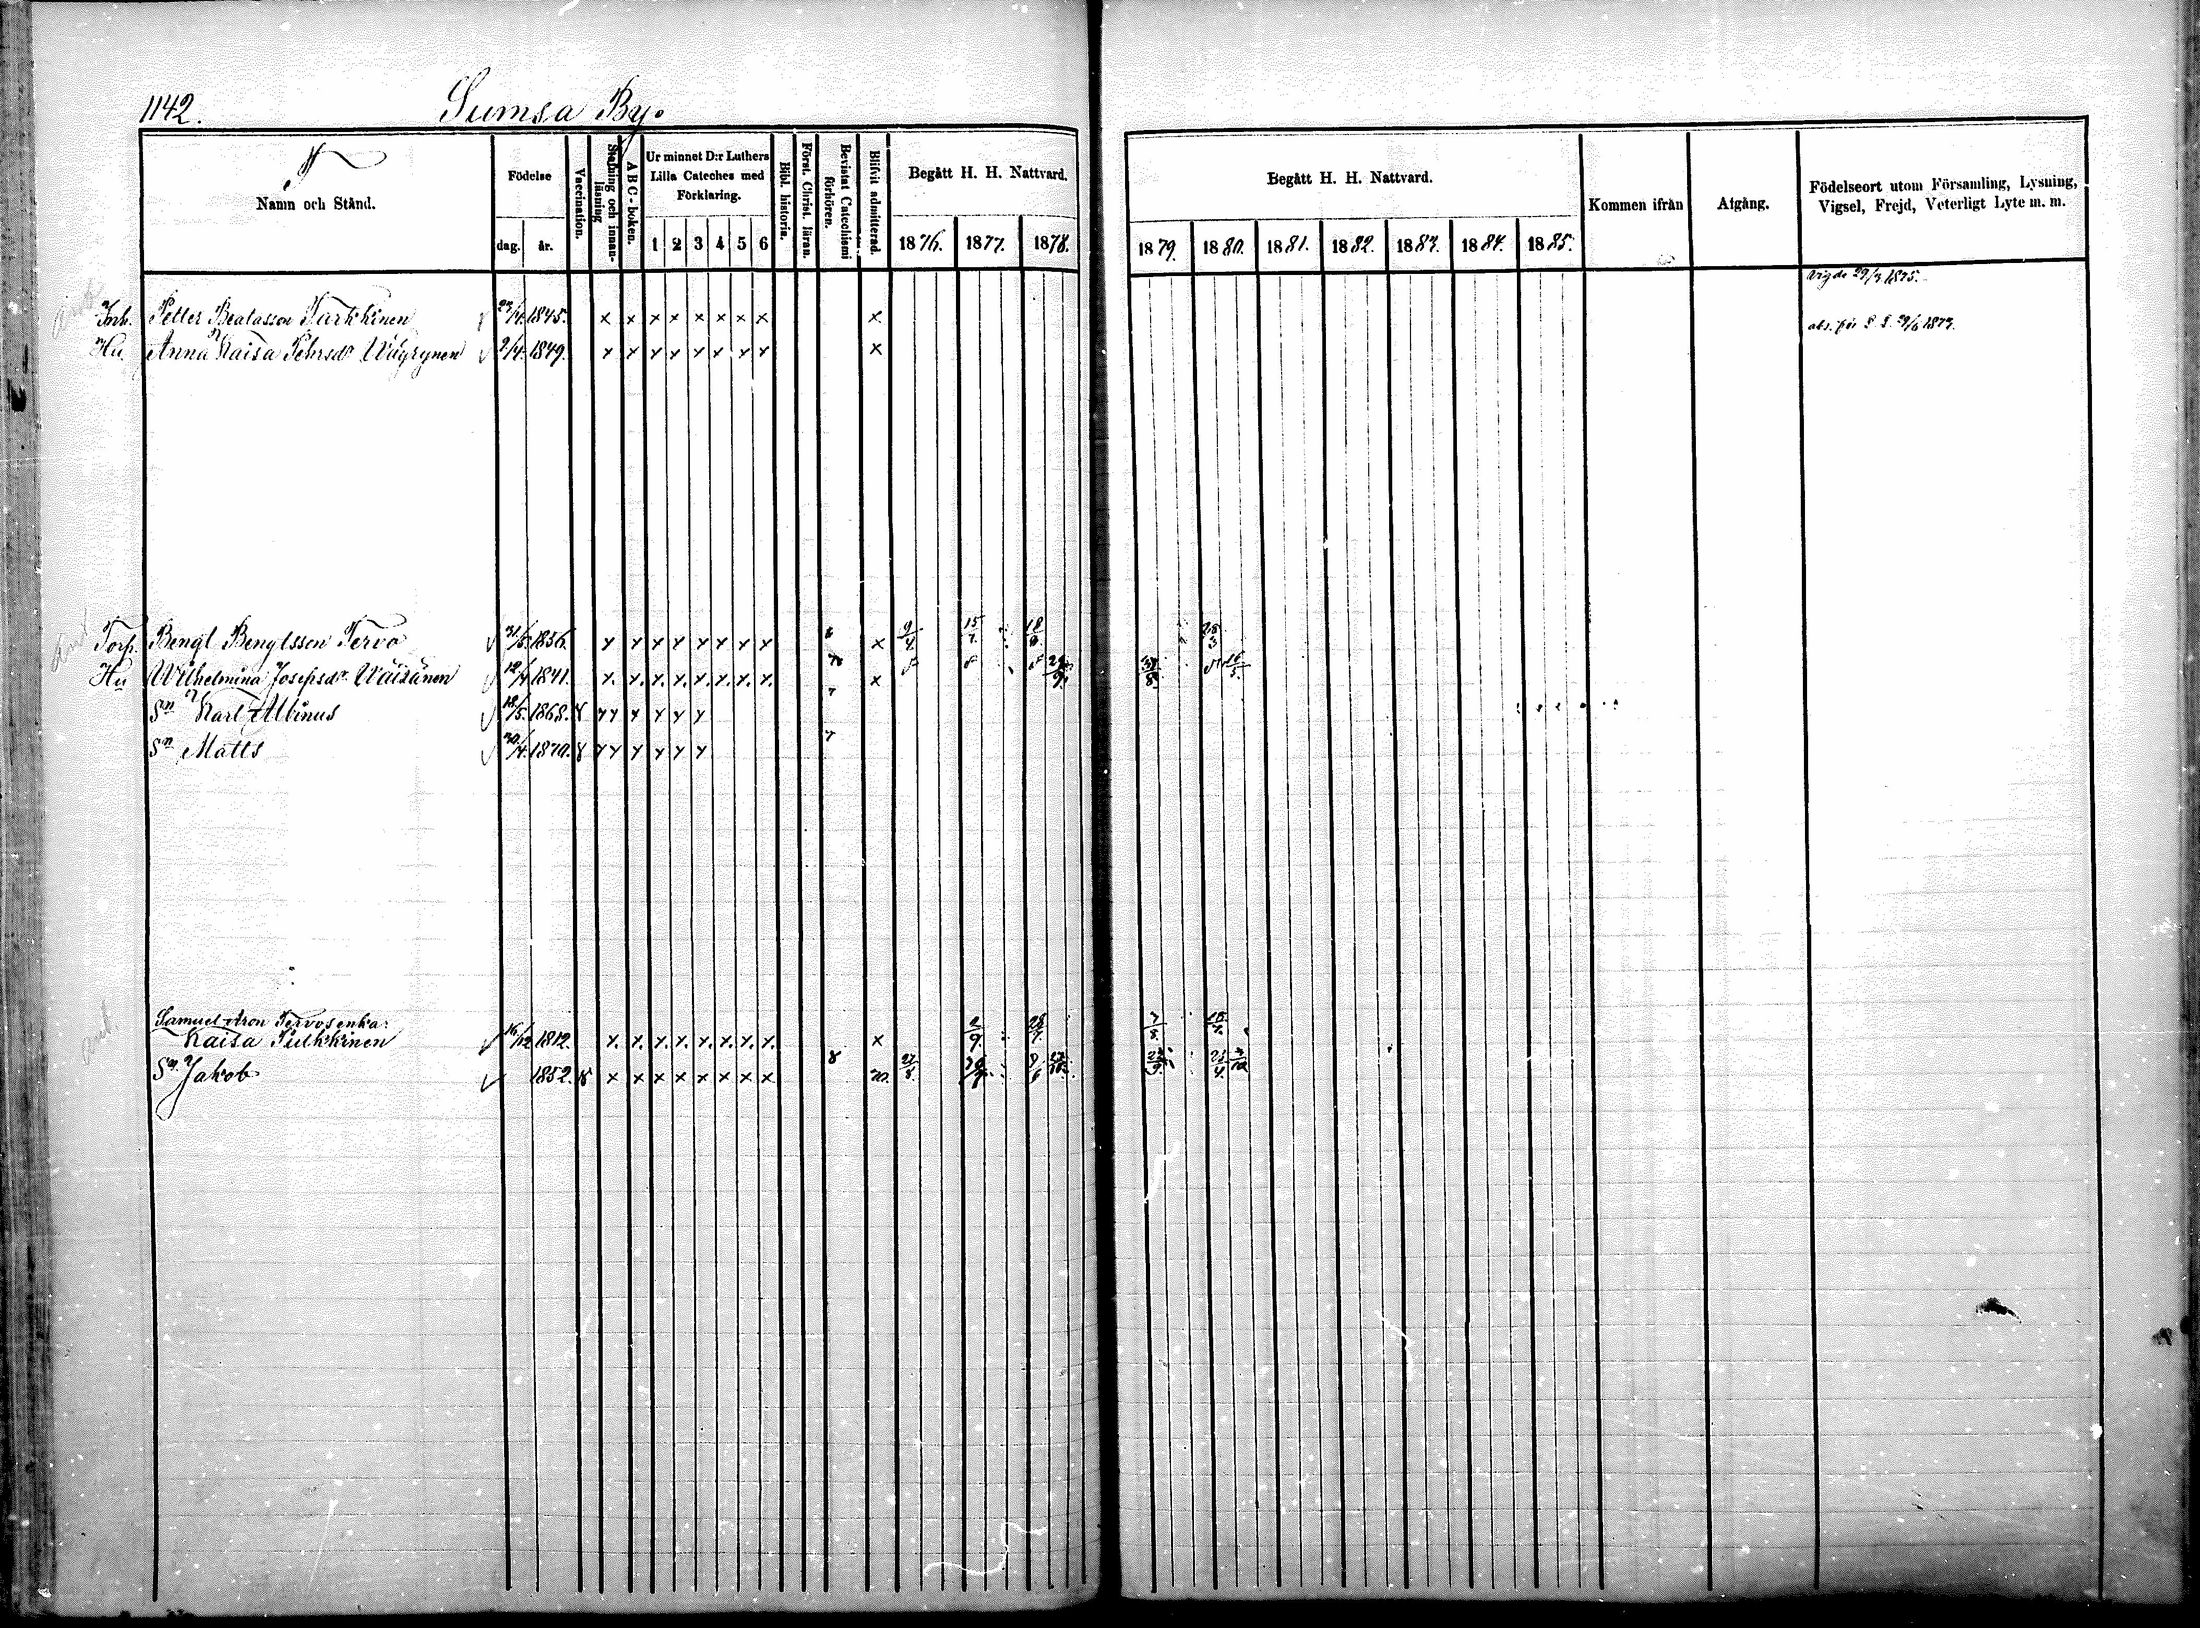 1142. Sumsa By.
Namn och Stånd. Födelse dag. år. Vaccination. Stafning och innanläsning A B C - boken. Ur minnet D:r Luthers Lilla Cateches med Förklaring. 1 2 3 4 5 6 Bibl. historia. Först. Christ. läran. Bevistat Catechismi förhören. Blifvit admitterad. Begått H. H. Nattvard. 1876. 1877. 1878.
Begått H. H. Nattvard. 1879. 1880. 1881. 1882. 1883. 1884. 1885. Kommen ifrån Afgång. Födelseort utom Församling, Lysning, Vigsel, Frejd, Veterligt Lyte m. m.
Vigde 29/3 1875.
Inh. Petter Beatasson Turkkinen 23/4. 1845. x x x x x x x x x
Hu Anna Kaisa Pehrsdr Wäyrynen 2/4. 1849. x x x x x x x x x
Torp. Bengt Bengtsson Tervo 31/5. 1836. x x x x x x x x x 9/4 15/7. 18/8. 28/3
Hu Wilhelmina Josepsdr Wäisänen 12/4. 1841. x. x. x. x. x. x. x. x. x
Sn Karl Albinus 18/5. 1868. x x x x x x
Sn Matts 30/4. 1870. x x x x x x
Samuel Aron Tervos enka:
Kaisa Pulkkinen 15/12 1812. x. x. x. x. x. x. x. x. x 2/9 28/7. 7/8. 18/4.
Sn Jakob 1852. x x x x x x x x 22/8.